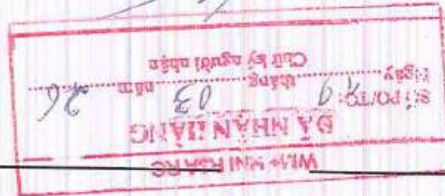 WM+ MNI
ĐÃ NHẬN HÀNG
Số PO/TO:
Ngày tháng 03 năm 26
Chữ ký người nhận